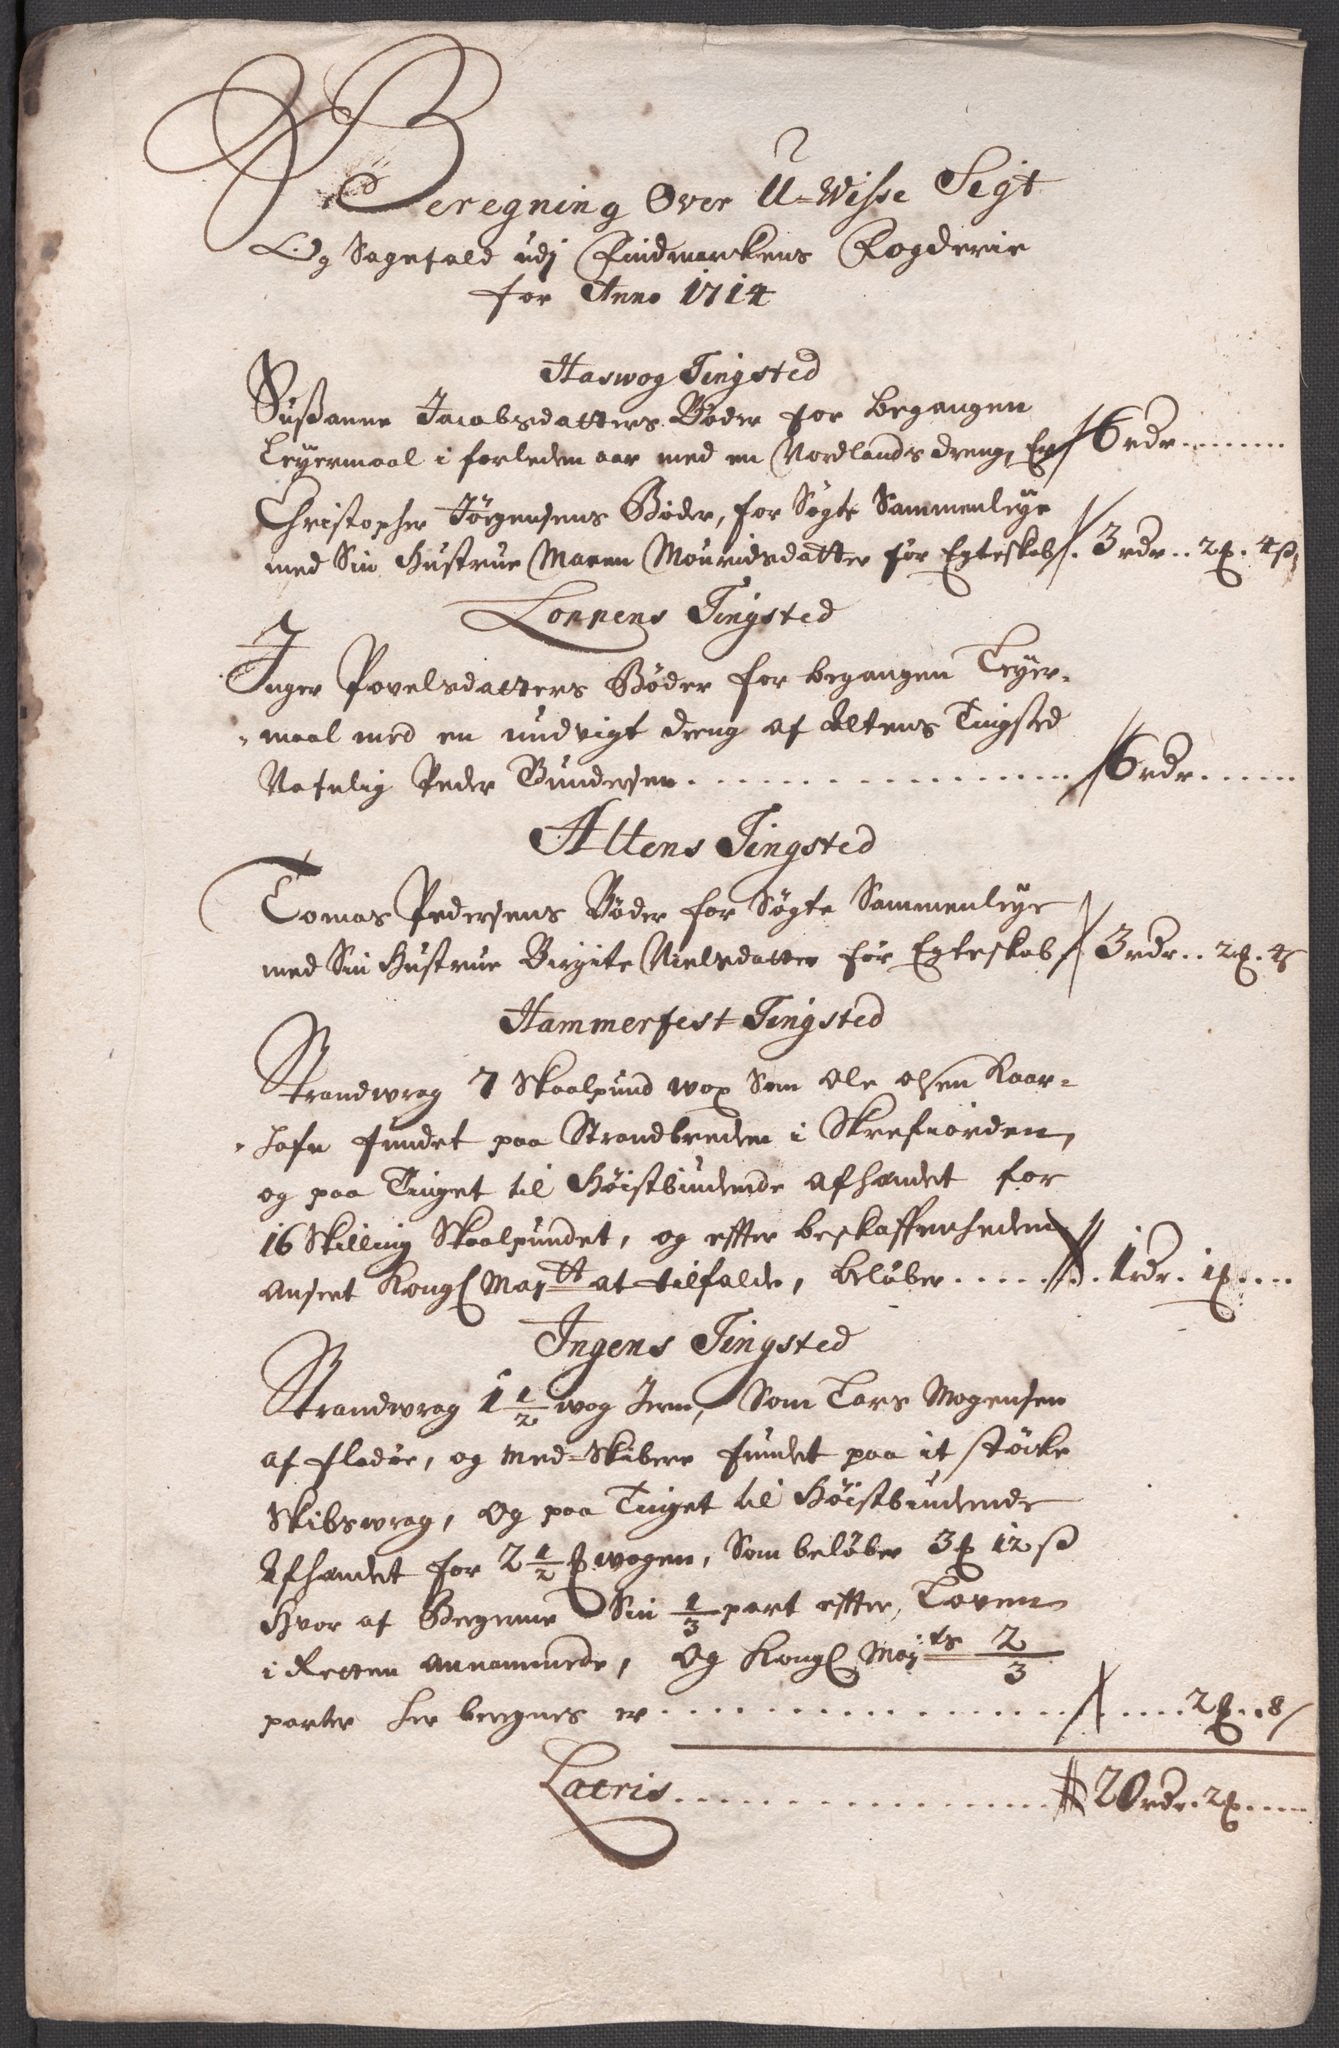 Beregning Over U-Wisse Sigt
Og Sagefald udj Findmarkens Fogderie
for Anno 1714
Haswog Tingsted
Sussanne Jacobsdatters Bøder for begangen
Leyermaal i forleden aar med en Nordlands dreng, Er 6 rdr
Christopher Jörgensens Bøder, for Søgte Sammenleye
med Sin Hustrue Maren Mouridsdatter før Egteskab 3 rdr .. 2 ℔. 4 ß
Loppens Tingsted
Inger Povelsdatters Bøder for begangen Leyer-
maal med en undvigt dreng af Altens Tingsted
Nafnlig Peder Gundersen 6 rdr
Altens Tingsted
Tomas Pedersens Bøder for Søgte Sammenleye
med Sin Hustrue Birgite Nielsdatter før Egteskab 3 rdr .. 2 ℔. 4 ß
Hammerfest Tingsted
Strandwrag 7 Skaalpund wox Som Ole Olsen Kaar-
hafn fundet paa Strandbreden i Skrefiorden,
og paa Tinget til Høistbiudende afhændet for
16 Skilling Skaalpundet, og effter beskaffenheden
anseet Kongl Maytt at tilfalde, beløber 1 rdr. 1 ℔
Ingens Tingsted
Strandwrag 1 1/2 wog Jern, Som Lars Mogensen
af fladøe, og Med-Skibere fundet paa it støcke
Skibswrag, Og paa Tinget til Høistbiudende
Afhændet for 2 1/2 ℔ wogen, Som beløber 3 ℔ 12 ß
Hvor af Bergerne Sin 1/3 part effter Loven
i Retten annammede, Og Kongl Mayts 2/3
parter her beregnes er 2 ℔ .. 8 ß
Lateris 20 rdr. 2 ℔